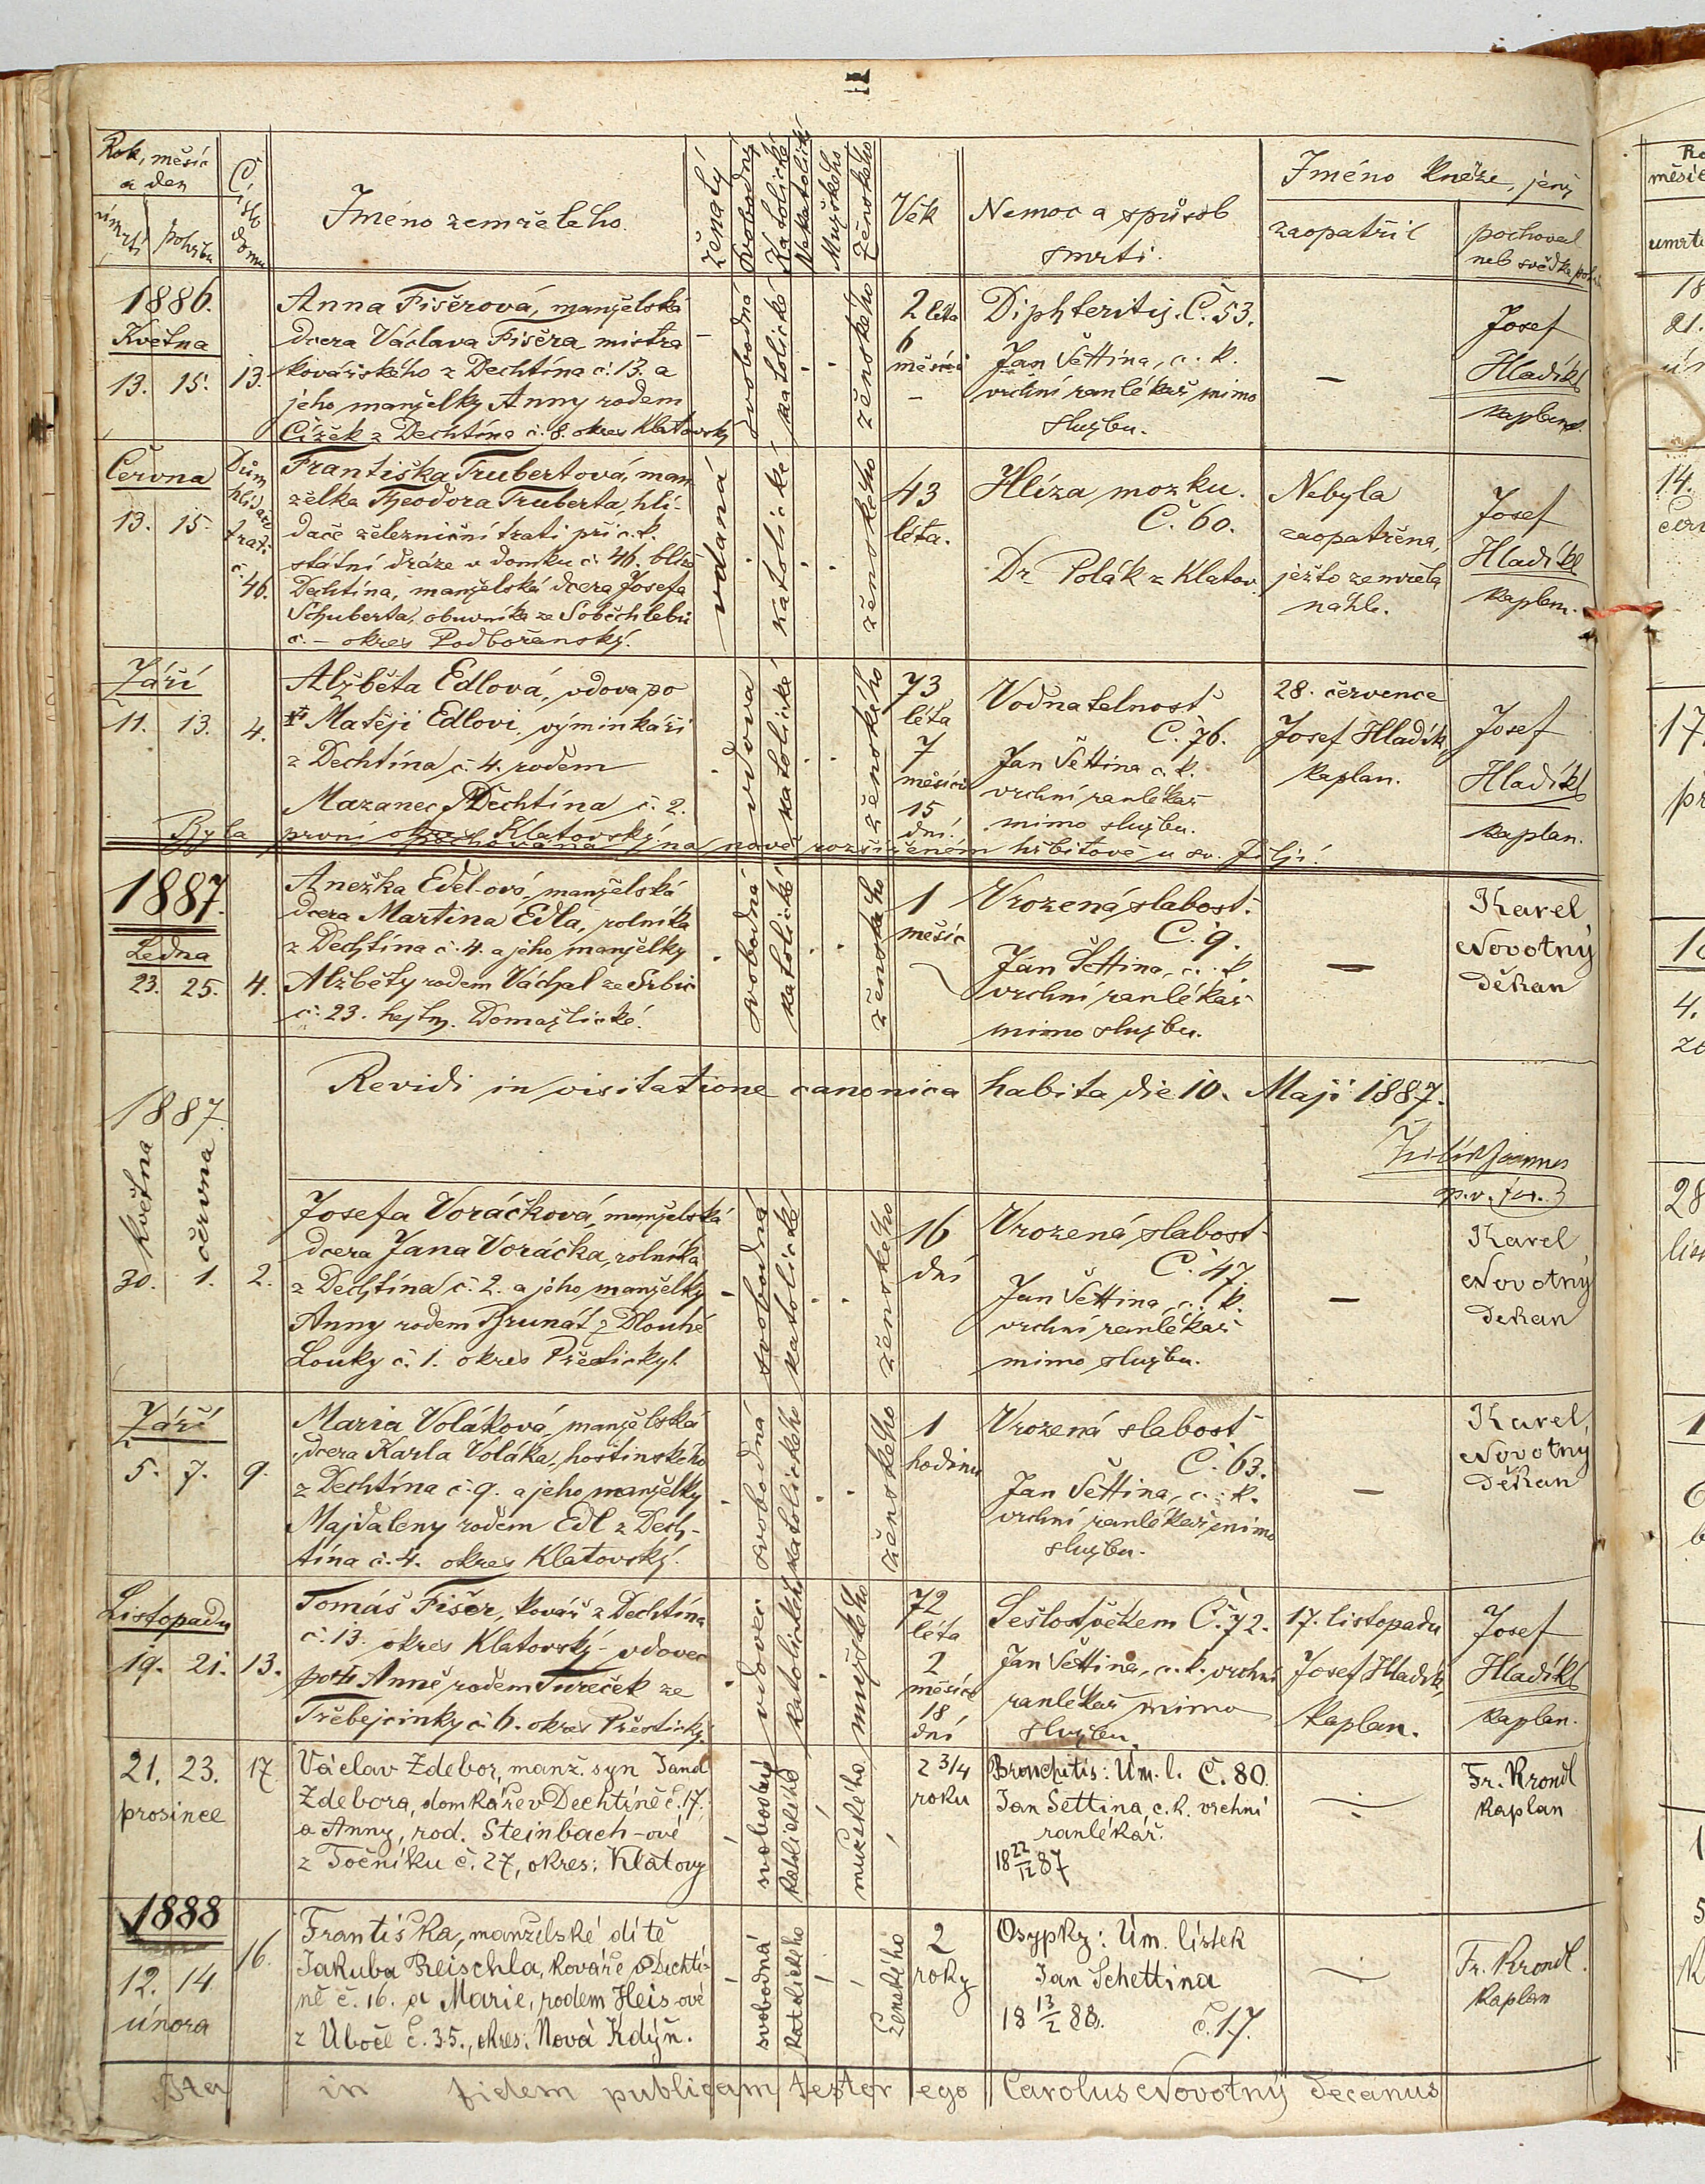 II
Rok, měsíc
a den
úmrtí
pohřbu
Číslo domu
Jméno zemřelého.
ženatý
svobodný
Katolické
Nekatolické
Mužského
ženského
Věk
Nemoc a spůsob
smrti.
Jméno kněze, jenž
zaopatřil
pochoval
neb svědka
1886.
Května
13. 15. 13.
Anna Fišerová, manželská
dcera Václava Fišera mistra
kovářského z Dechtína č. 13. a
jeho manželky Anny rodem
Čížek z Dechtína č. 8. okres Klatovský
svobodná
katolické
ženského
2 léta
6
měsíců
Diphteritis. Č. 53.
Jan Šettina, c. k.
vrchní ranlékař mimo
službu.
—
Josef
Hladík
kaplan.
Června
13. 15.
Dům
hlídače
trati
č.
46.
Františka Trubertová, man
želka Theodora Truberta, hlí-
dače železniční trati při c. k.
státní dráze v domku č. 46. blíže
Dechtína, manželská dcera Josefa
Schuberta, obuvníka ze Soběchleb
č. – okres Podbořanský.
vdaná
katolické
ženského
43
léta.
Hlíza mozku.
Č. 60.
Dr Polák z Klatov
Nebyla
zaopatřena,
ježto zemřela
náhle.
Josef
Hladík
kaplan.
Září
11. 13. 4.
Alžběta Edlová, vdova po
† Matěji Edlovi, výminkáři
z Dechtína č. 4. rodem
Mazanec z Dechtína č. 2.
okres Klatovský
vdova
katolické
ženského
73
léta
7
měsíců
15
dní.
Vodnatelnost
Č. 76.
Jan Šettina c. k.
vrchní ranlékař
mimo službu.
28. července
Josef Hladík,
kaplan.
Josef
Hladík
kaplan.
Byla první pochovaná na nově rozšířeném hřbitově u sv. Jiljí.
1887.
Ledna
23. 25. 4.
Anežka Edel-ová, manželská
dcera Martina Edla, rolníka
z Dechtína č. 4. a jeho manželky
Alžběty rodem Váchal ze Srbic
č. 23. hejtm. Domažlické.
svobodná
katolické
ženského
1
měsíc
Vrozená slabost.
Č. 9.
Jan Šettina, c. k.
vrchní ranlékař
mimo službu.
—
Karel
Novotný
Děkan
Revidi in visitatione canonica habita die 10. Maji 1887.
Joannes
1887.
května
června
30. 1. 2.
Josefa Voráčková, manželská
dcera Jana Voráčka, rolníka
z Dechtína č. 2. a jeho manželky
Anny rodem Brunát z Dlouhé
Louky č. 1. okres Přestický.
svobodná
katolické
ženského
16
dní
Vrozená slabost
Č. 47.
Jan Šettina, c. k.
vrchní ranlékař
mimo službu.
—
Karel
Novotný
Děkan
Září
5. 7. 9.
Maria Voláková, manželská
dcera Karla Voláka, hostinského
z Dechtína č. 9. a jeho manželky
Majdaleny rodem Edl z Dech-
tína č. 4. okres Klatovský.
svobodná
katolického
ženského
1
hodinu
Vrozená slabost
Č. 63.
Jan Šettina, c. k.
vrchní ranlékař mimo
službu.
—
Karel
Novotný
Děkan
Listopadu
19. 21. 13.
Tomáš Fišer, kovář z Dechtína
č. 13. okres Klatovský – vdovec
po † Anně rodem Tureček ze
Třebejcinky č. 6. okres Přestický.
vdovec
katolického
mužského
72
léta
2
měsíce
18
dní
Sešlost věkem Č. 72.
Jan Šettina, c. k. vrchní
ranlékař mimo
službu.
17. listopadu
Josef Hladík,
kaplan.
Josef
Hladík
kaplan.
21. 23. 17.
prosince
Václav Zdebor, manž. syn Jana
Zdebora, domkáře v Dechtíně č. 17.
a Anny, rod. Steinbach-ové
z Točníku č. 27, okres: Klatovy
svobodný
katolického
mužského
2 3/4
roku
Bronchitis: Úm. l. Č. 80.
Jan Settina, c. k. vrchní
ranlékář.
18 22/12 87
Fr. Krondl
kaplan
1888
12. 14. 16.
února
Františka, manželské dítě
Jakuba Reischla, kováře v Dechtí-
ně č. 16. a Marie, rodem Heis-ové
z Úboče č. 35., okres: Nová Kdýň.
svobodná
katolického
ženského
2
roky
Osypky: Úm. lístek
Jan Schettina
18 13/2 88. č. 17.
Fr. Krondl.
kaplan
Ita in fidem publicam testor ego Carolus Novotný decanus